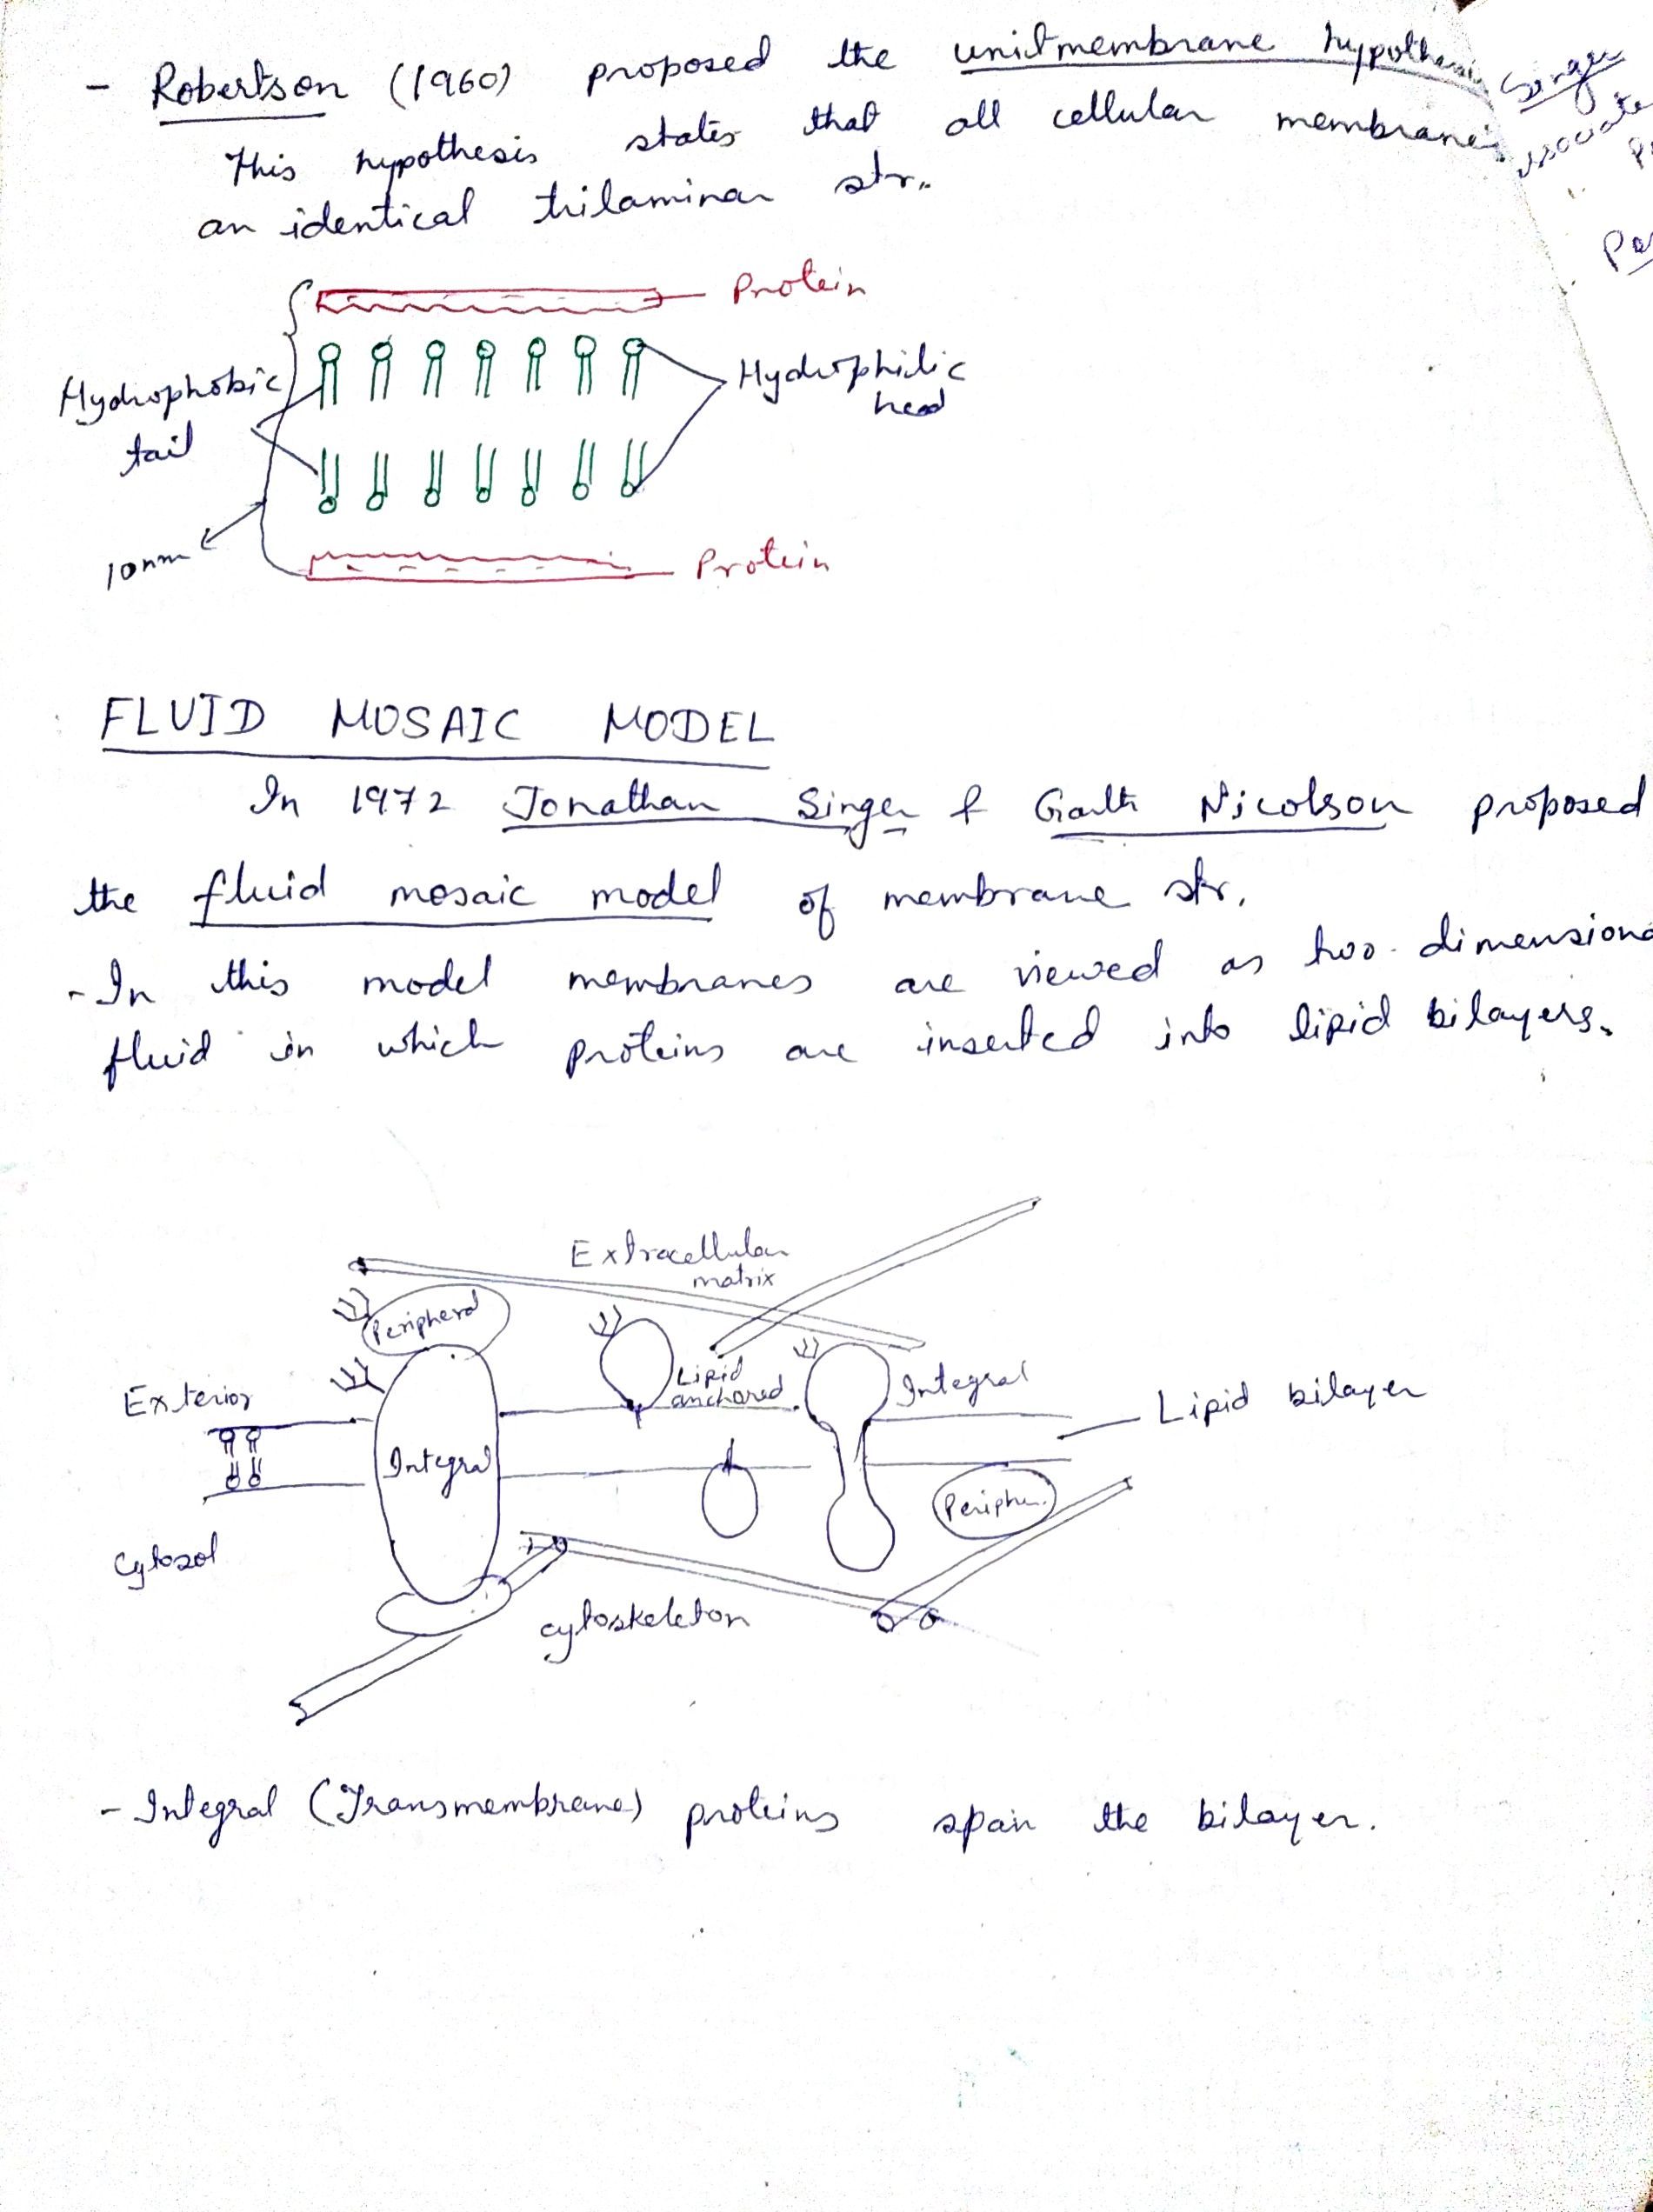 - Robertson (1960) proposed the unit membrane
This hypothesis states that all cellular membrane
an identical trilaminar str.
Singer
Protein
Hydrophobic
tail
Hydrophilic
head
10nm
Protein
FLUID MOSAIC MODEL
In 1972 Jonathan Singer & Garth Nicolson proposed
the fluid mosaic model of membrane str.
- In this model membranes are viewed as two-dimensiona
fluid in which proteins are inserted into lipid bilayers.
Extracellular
matrix
Peripheral
Lipid
anchored
Integral
Exterior
Lipid bilayer
Integral
Periphe.
Cytosol
cytoskeleton
- Integral (Transmembrane) proteins span the bilayer.